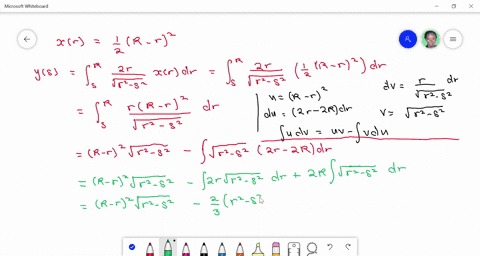 Microsoft Whiteboard
x(r) = 1/2 (R-r)²
y(s) = ∫_s^R 2r/√(r²-s²) x(r) dr = ∫_s^R 2r/√(r²-s²) (1/2 (R-r)²) dr
= ∫_s^R r(R-r)²/√(r²-s²) dr
u = (R-r)²
du = (2r-2R)dr
dv = r/√(r²-s²) dr
v = √(r²-s²)
∫u dv = uv - ∫v du
= (R-r)² √(r²-s²) - ∫√(r²-s²) (2r-2R)dr
= (R-r)² √(r²-s²) - ∫2r√(r²-s²) dr + 2R∫√(r²-s²) dr
= (R-r)² √(r²-s²) - 2/3 (r²-s²